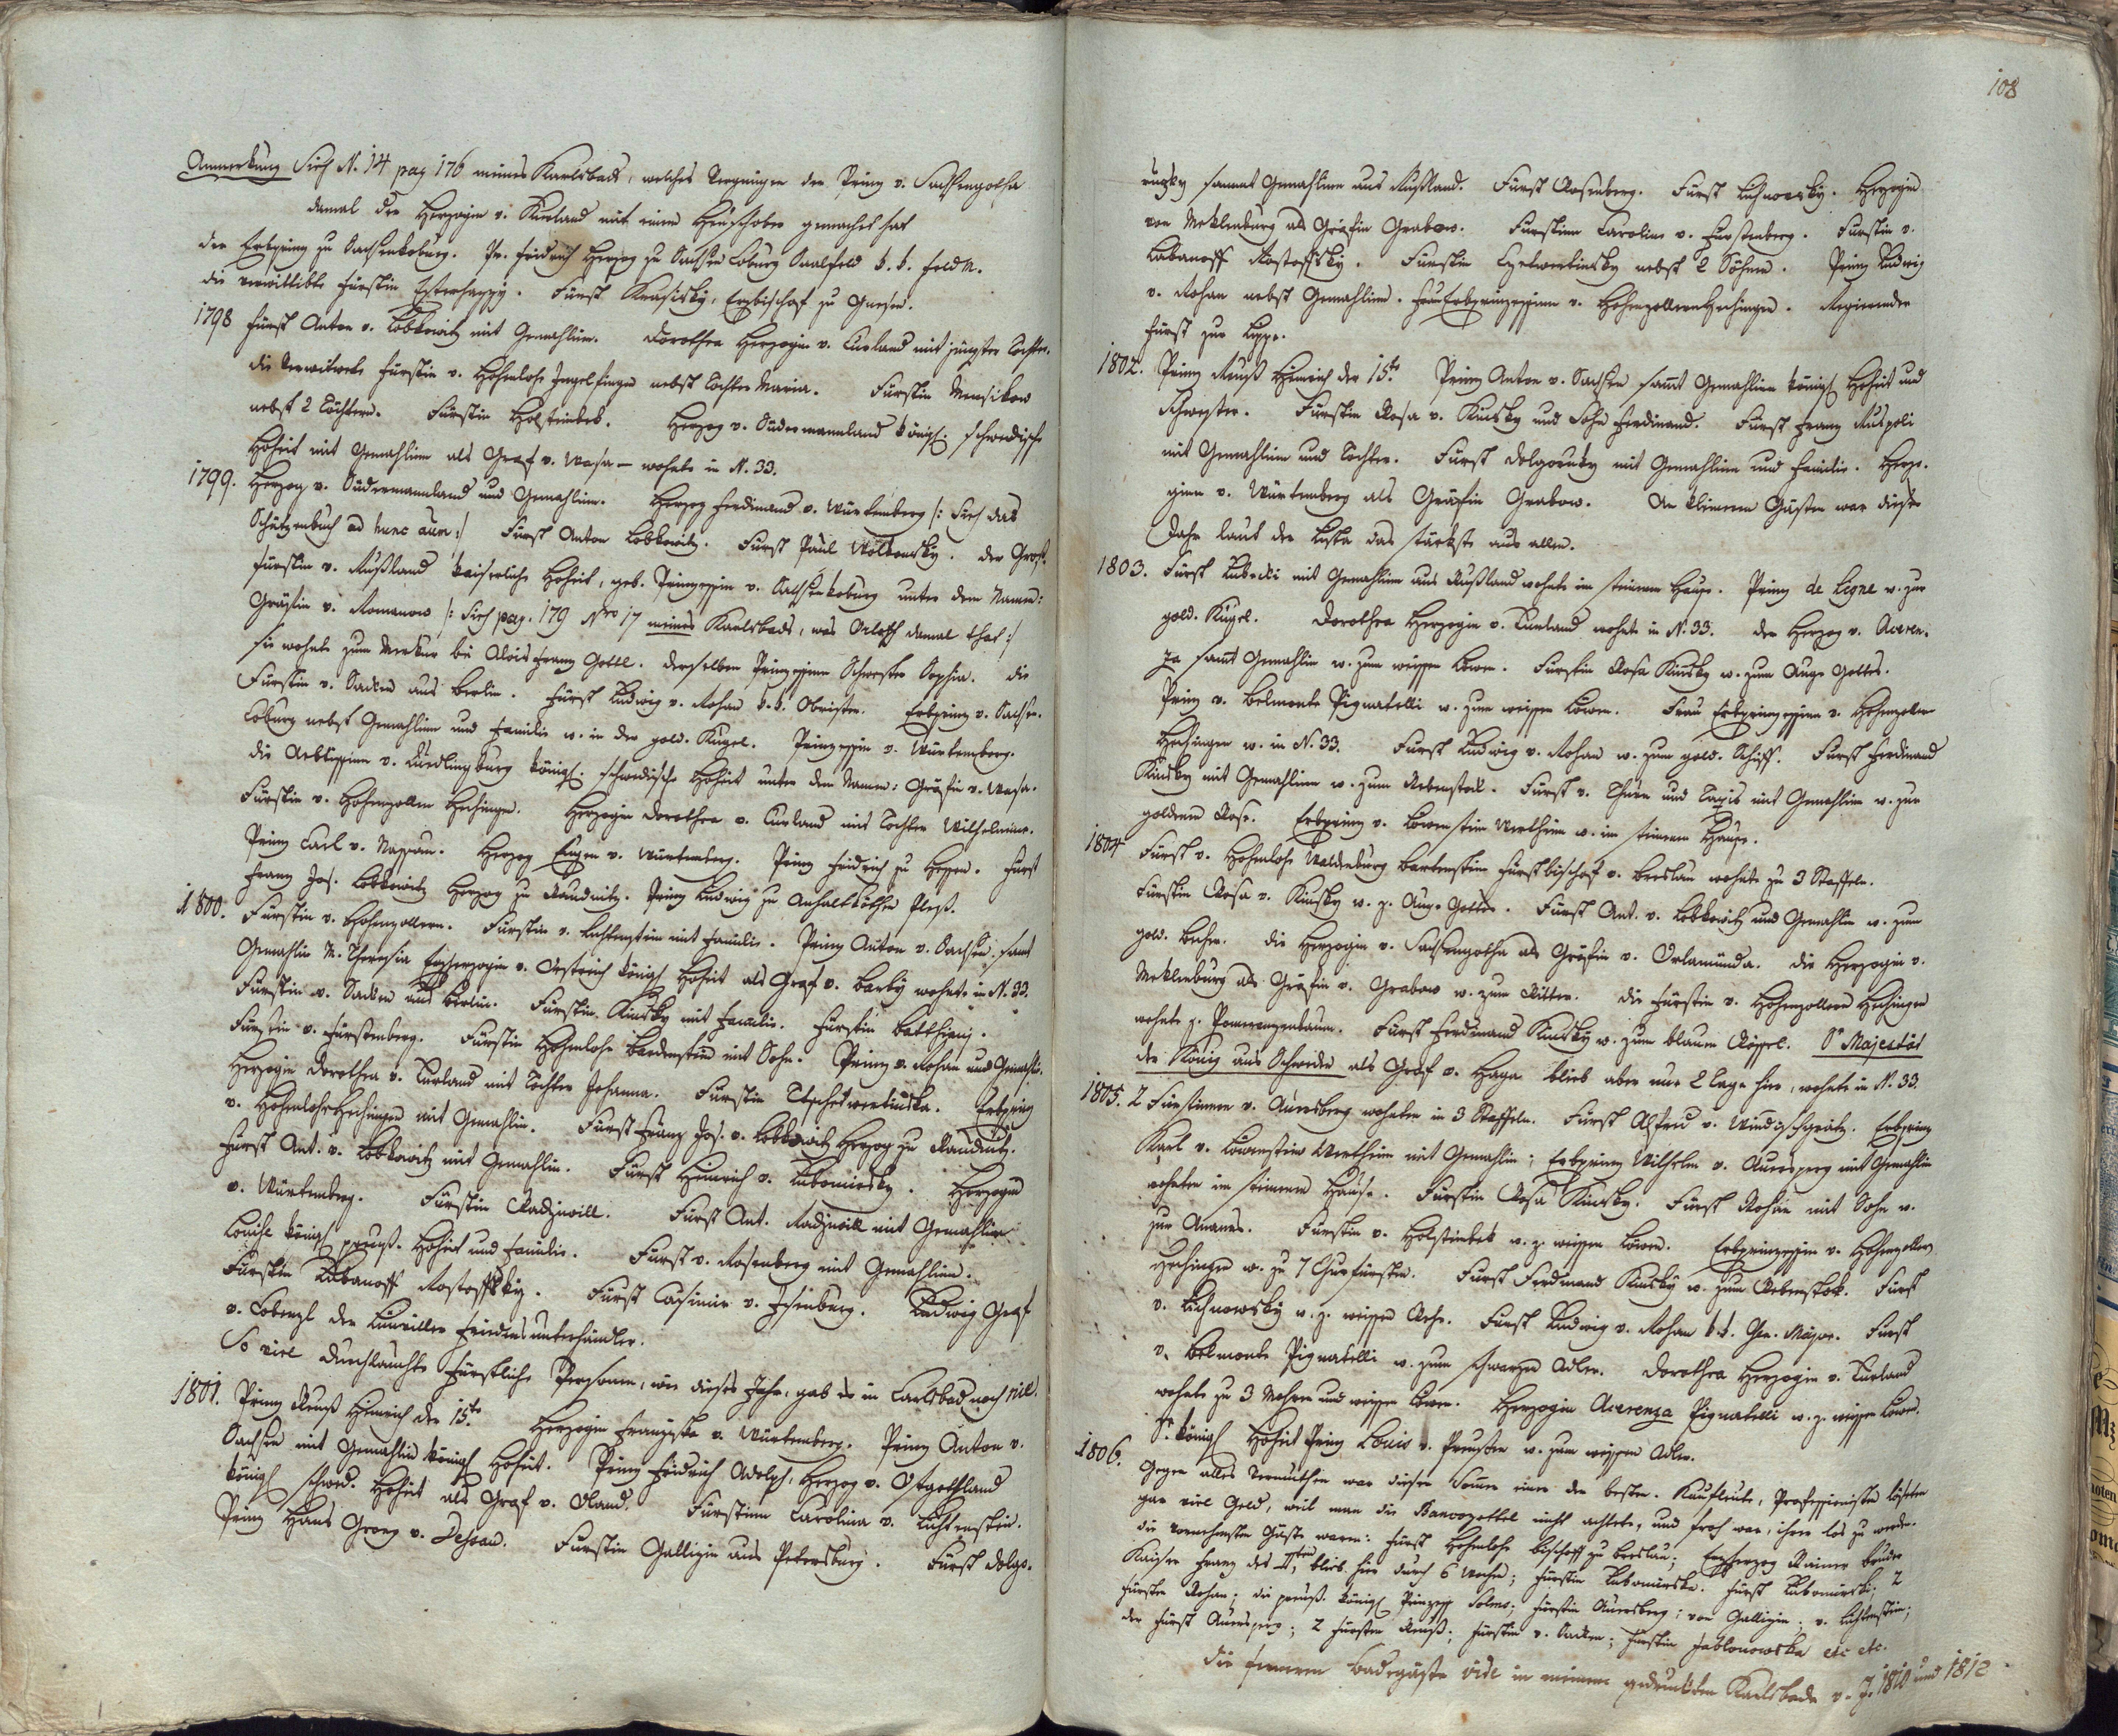 Anmerkung Sieh N. 14 pag 176 meines Karlsbads, welches Vergnügen der Prinz v. Sachsengotha
damal der Herzogin v. Kurland mit einem Heuschober gemacht hat
der Erbprinz zu Sachsenkoburg. Pr. Fridrich Herzog zu Sachsen Coburg Saalfeld k. k. Feld M.
die verwittibte Fürstin Esterhazzy. Fürst Krasisky, Erzbischof zu Gnesen.
1798 Fürst Anton v. Lobkowitz mit Gemahlinn. Dorothea Herzogin v. Curland mit jüngster Tochter.
die Verwitwete Fürstin v. Hohenlohe Ingelfingen nebst Tochter Maria. Fürstin Mensikow
nebst 2 Töchtern. Fürstin Holsteinbek. Herzog v. Südermannland königl. schwedische
Hoheit mit Gemahlinn als Graf v. Wasa – wohnte in N. 33.
1799. Herzog v. Südermannland und Gemahlinn. Herzog Ferdinand v. Würtemberg /: Sieh das
Schützenbuch ad hunc aun :/ Fürst Anton Lobkowitz. Fürst Paul Wolkonsky. Der Groß-
fürstin v. Rußland kaiserliche Hoheit, geb. Prinzessin v. Sachsenkoburg unter dem Namen:
Gräfin v. Romanow /: Sieh pag. 179 Nro 17 meines Karlsbads, was Orloff damal that :/
sie wohnte zum Merkur bei Alois Franz Gottl. derselben Prinzessinn Schwester Sophia. die
Fürstin v. Sacken aus Berlin. Fürst Ludwig v. Rohan k. k. Obrister. Erbprinz v. Sachsen-
Coburg nebst Gemahlinn und Familie w. in der gold. Kugel. Prinzessin v. Würtemberg.
die Aebtissinn v. Quedlingburg königl. schwedische Hoheit unter dem Namen: Gräfin v. Wasa.
Fürstin v. Hohenzollern Hechingen. Herzogin Dorothea v. Curland mit Tochter Wilhelmine.
Prinz Carl v. Nassau. Herzog Eugen v. Würtemberg. Prinz Fridrich zu Hessen. Fürst
Franz Jos. Lobkowitz Herzog zu Raudnitz. Prinz Ludwig zu Anhaltköthen Pleß.
1800. Fürstin v. Hohenzollern. Fürstin v. Lichtenstein mit Familie. Prinz Anton v. Sachsen, samt
Gemahlin M. Theresia Erzherzogin v. Oestreich königl Hoheit als Graf v. Barby wohnte in N. 33.
Fürstin v. Sacken aus Berlin. Fürstin Kinsky mit Familie. Fürstin Batthyani.
Fürstin v. Fürstenberg. Fürstin Hohenlohe Bardenstein mit Sohn. Prinz v. Rohan und Gemahlin.
Herzogin Dorothea v. Curland mit Tochter Johanna. Fürstin Tschetwertinska. Erbprinz
v. Hohenlohe Hechingen mit Gemahlin. Fürst Franz Jos. v. Lobkowitz Herzog zu Raudnitz.
Fürst Ant. v. Lobkowitz mit Gemahlin. Fürst Heinrich v. Lubomirsky. Herzogin
v. Würtemberg. Fürstin Radziwill. Fürst Ant. Radziwill mit Gemahlinn
Louise königl preuß. Hoheit und Familie. Fürst v. Rosenberg mit Gemahlinn.
Fürstin Labanoff Rostoffsky. Fürst Casimir v. Isenburg. Ludwig Graf
v. Cobenzl der Luneviller Friedensunterhändler.
So viel durchlauchte fürstliche Personen, wie dieses Jahr, gab es in Carlsbad noch nie.
1801. Prinz Reuß Heinrich der 15te Herzogin Franziska v. Würtemberg. Prinz Anton v.
Sachsen mit Gemahlin königl Hoheit. Prinz Fridrich Adolph, Herzog v. Ostgothland
königl schwed. Hoheit als Graf v. Oland. Fürstinn Carolina v. Lichtenstein.
Prinz Hans Georg v. Dessau. Fürstin Gallizin aus Petersburg. Fürst Dolgo-
108
rugky sammt Gemahlinn aus Rußland. Fürst Rosenberg. Fürst Lichnowsky. Herzogin
von Meklenburg als Gräfin Grabow. Fürstinn Caroline v. Fürstenberg. Fürstin v.
Labanoff Rostoffsky. Fürstin Czetwertinsky nebst 2 Söhnen. Prinz Ludwig
v. Rohan nebst Gemahlinn. Frau Erbprinzessinn v. Hohenzollern Hechingen. Regierender
Fürst zur Lippe.
1802. Prinz Reuß Heinrich der 15te. Prinz Anton v. Sachsen sammt Gemahlinn königl Hoheit und
Schwester. Fürstin Rosa v. Kinsky und Sohn Ferdinand. Fürst Franz Ruspoli
mit Gemahlinn und Tochter. Fürst Dolgorucky mit Gemahlinn und Familie. Herzo-
ginn v. Würtemberg als Gräfin Grabow. An kleinern Gästen war dieses
Jahr laut der Liste das stärkste aus allen.
1803. Fürst Lubecki mit Gemahlinn aus Rußland wohnte im steinern Hause. Prinz de Ligne w. zur
gold. Kugel. Dorothea Herzogin v. Curland wohnte in N. 33. der Herzog v. Aceren-
za samt Gemahlin w. zum weissen Löwen. Fürstin Rosa Kinsky w. zum Auge Gottes.
Prinz v. Belmonte Pignatelli w. zum weissen Löwen. Frau Erbprinzessinn v. Hohenzollern
Hechingen w. in N. 33. Fürst Ludwig v. Rohan w. zum gold. Schiff. Fürst Ferdinand
Kinsky mit Gemahlinn w. zum Rebenstock. Fürst v. Thurn und Taxis mit Gemahlinn w. zur
goldenen Rose. Erbprinz v. Löwenstein Wertheim w. im steinern Hause.
1804 Fürst v. Hohenlohe Waldenburg Bartenstein Fürstbischof v. Breslau wohnte zu 3 Staffeln.
Fürstin Rosa v. Kinsky w. z. Auge Gottes. Fürst Ant. v. Lobkowitz und Gemahlin w. zum
gold. Becher. die Herzogin v. Sachsengotha als Gräfin v. Orlamünda. die Herzogin v.
Meklenburg als Gräfin v. Grabow w. zum Ritter. die Fürstin v. Hohenzollern Hechingen
wohnte z. Pomeranzenbaum. Fürst Ferdinand Kinsky w. zum blauen Rössel. Sr Majestät
der König aus Schweden als Graf v. Haga blieb aber nur 2 Tage hier, wohnte in N. 33.
1805. 2 Fürstinnen v. Auersberg wohnten in 3 Staffeln. Fürst Alfred v. Windischgrätz. Erbprinz
Karl v. Löwenstein Wertheim mit Gemahlin; Erbprinz Wilhelm v. Auersperg mit Gemahlin
wohnten im steinern Hause. Fürstin Rosa Kinsky. Fürst Rohan mit Sohn w.
zur Ananas. Fürstin v. Holsteinbek w. z. weissen Löwen. Erbprinzessin v. Hohenzollern
Hechingen w. zu 7 Churfürsten. Fürst Ferdinand Kinsky w. zum Rebenstok. Fürst
v. Lichnowsky w. z. weissen Rose. Fürst Ludwig v. Rohan k. k. Gen. Major. Fürst
v. Belmonte Pignatelli w. zum schwarzen Adler. Dorothea Herzogin v. Curland
wohnte zu 3 Mohren und weissen Löwen. Herzogin Acerenza Pignatelli w. z. weissen Löwen.
Sr. königl Hoheit Prinz Louis v. Preußen w. zum weissen Adler.
1806. Gegen alles Vermuthen war dieser Sommer einer der besten. Kaufleute, Professionisten lösten
gar viel Geld, weil man die Bancozettel nicht achtete, und froh war, ihrer los zu werden.
die vornehmsten Gäste waren: Fürst Hohenlohe Bischoff zu Breslau; Erzherzog Rainer Bruder
Kaiser Franz des IIten, blieb hier durch 6 Wochen; Fürstin Lubomirska. Fürst Lubomirski; 2
Fürsten Rohan; die preuß. königl Prinzess Solms; Fürstin Auersberg; von Gallizin; v. Lichtenstein;
der Fürst Auersperg; 2 Fürsten Reuß; Fürstin v. Sacken; Fürstin Jablonowska etc etc.
die fernern Badegäste vide in meinem gedruckten Karlsbade v. J. 1810 und 1812